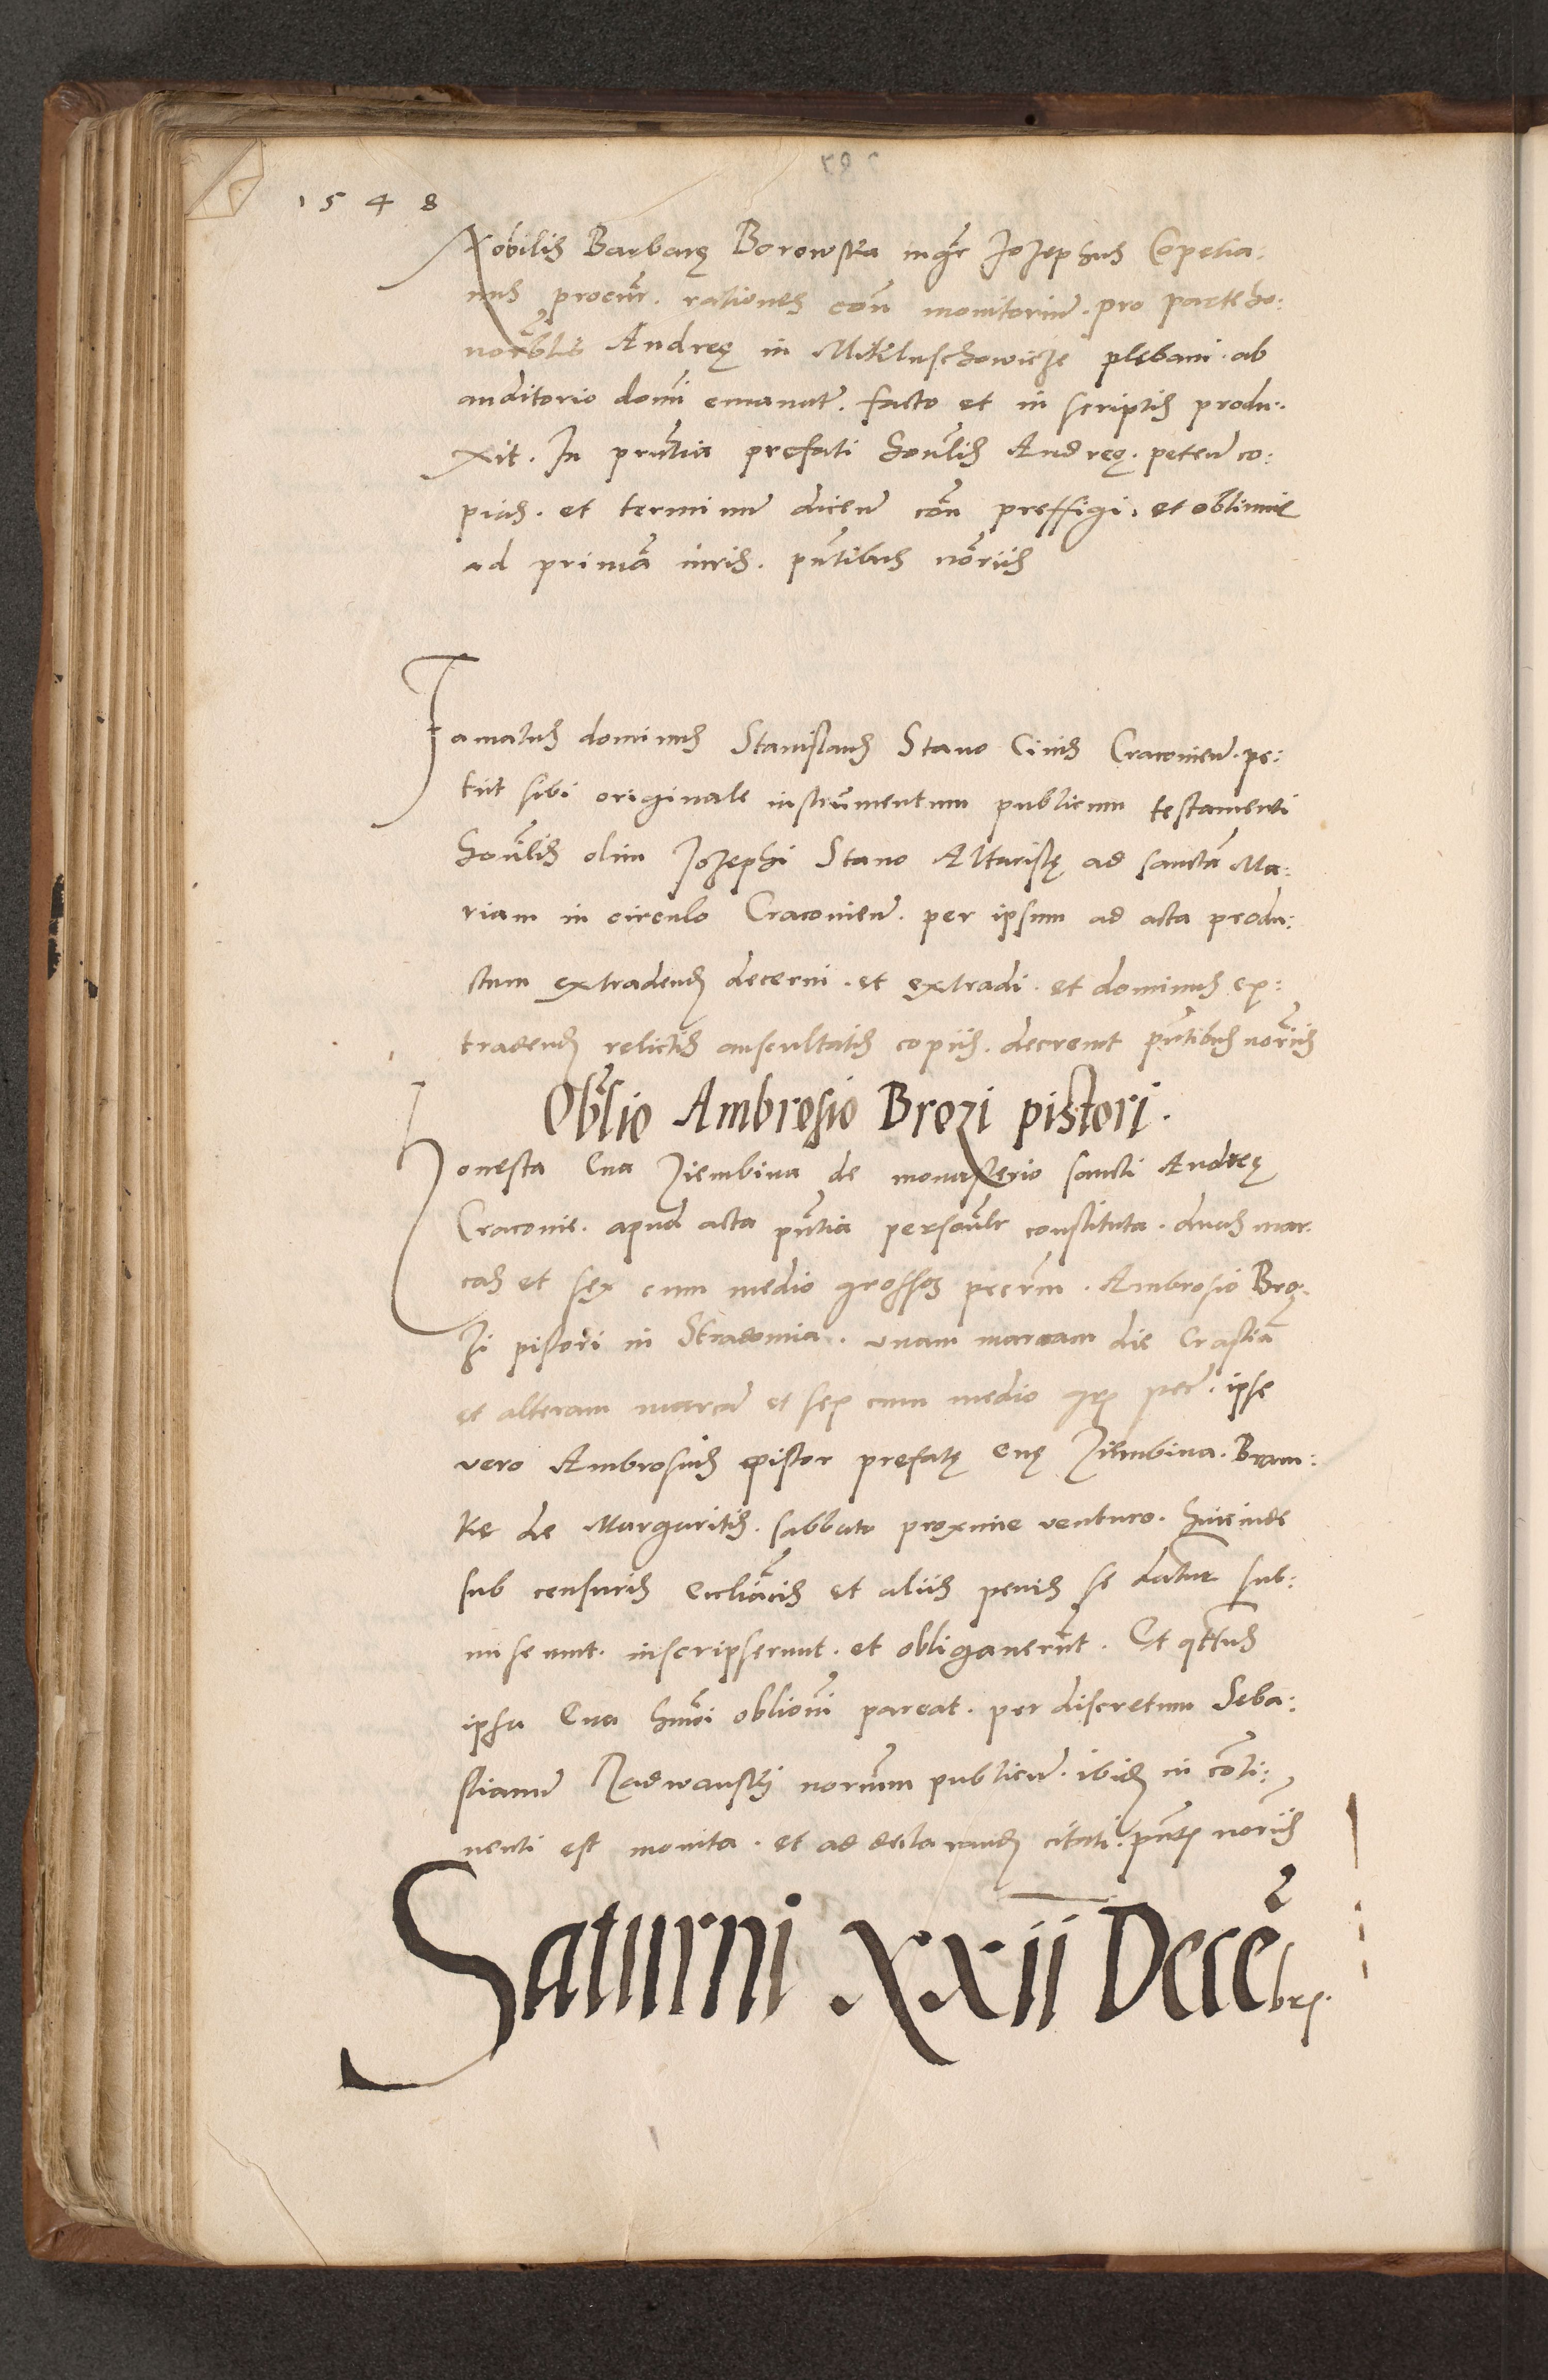 1548
Nobilis Barbarę Borowska mgr Jozephus Opetia:
nus procur. rationes con monitorium. pro parte ho:
norablis Andreę in Mikluschowicze plebani. ab
auditorio domi emanat. facto et in scriptis produ:
xit. In pntia prefati honlis Andreę. peten co:
pias. et terminum dicen con preffigi. et obtinuit
ad primã iuris. pntibus noriis
Famatus dominus Stanislaus Stano Ciuis Cracovien. pe:
tiit sibi originale instrumentum publicum testamenti
honlis olim Jozephi Stano Altaristę ad sanctã Ma:
riam in circulo Cracovien. per ipsum ad acta produ:
ctum extradend decerni. et extradi. et dominus ex:
tradend relictis auscultatis copiis. decrevit pntibus noriis
Oblio Ambrosio Brozi pistori.
Honesta Eva Ziembina de monasterio sancti Andreę
Cracovie. apud acta pntia personlr constituta. duas mar:
cas et sex cum medio grossos pecũm. Ambrosio Bro:
zi pistori in Stradomia. unam marcam die Crastiã
et alteram marcã et sex cum medio grs pec. ipse
vero Ambrosius pistor prefatę Evę Ziembina. Bram:
ke de Margaritis. sabbato proxime venturo. hincinde
sub censuris eccliãcis et aliis penis se datur sub:
miserunt. inscripserunt. et obligaverunt. Et qtenus
ipsa Eva hmoi oblioni pareat. per discretum Seba:
stianum Radwanski norium publicum. ibid in conti:
nenti est monita. et ad declarand citati. pntbs noriis
Saturni XXII Decẽbrs.